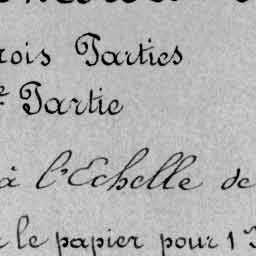 rois Parties
Partie
à l'Echelle de
le papier pour 1